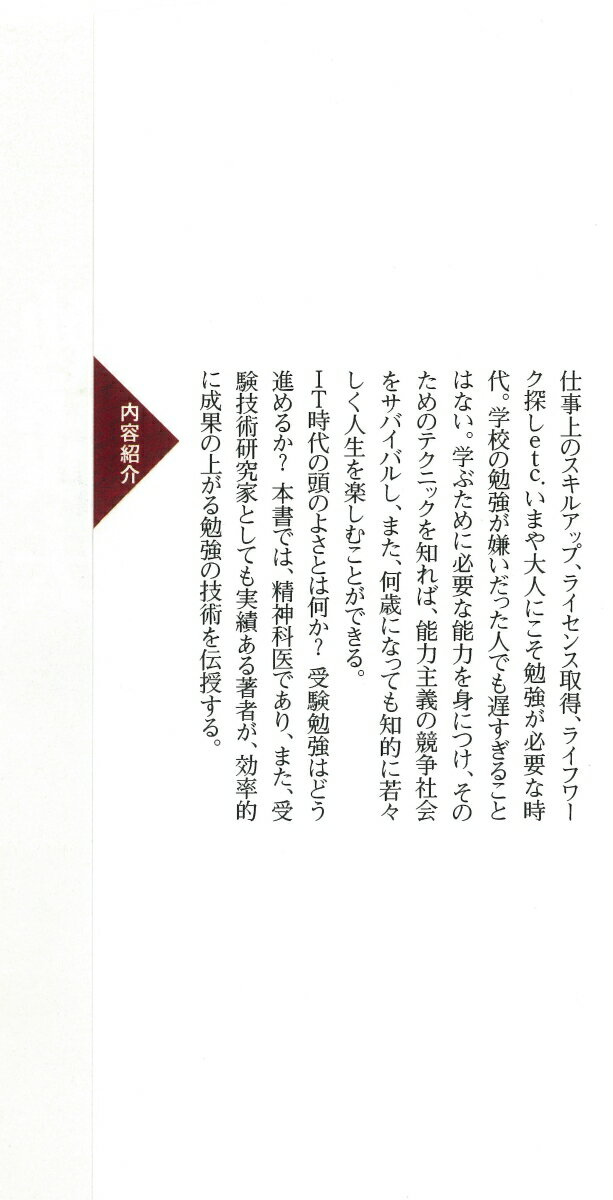 仕事上のスキルアップ、ライセンス取得、ライフワー
ク探しetc.いまや大人にこそ勉強が必要な時
代。学校の勉強が嫌いだった人でも遅すぎること
はない。学ぶために必要な能力を身につけ、その
ためのテクニックを知れば、能力主義の競争社会
をサバイバルし、また、何歳になっても知的に若々
しく人生を楽しむことができる。
IT時代の頭のよさとは何か? 受験勉強はどう
進めるか? 本書では、精神科医であり、また、受
験技術研究家としても実績ある著者が、効率的
に成果の上がる勉強の技術を伝授する。
内容紹介